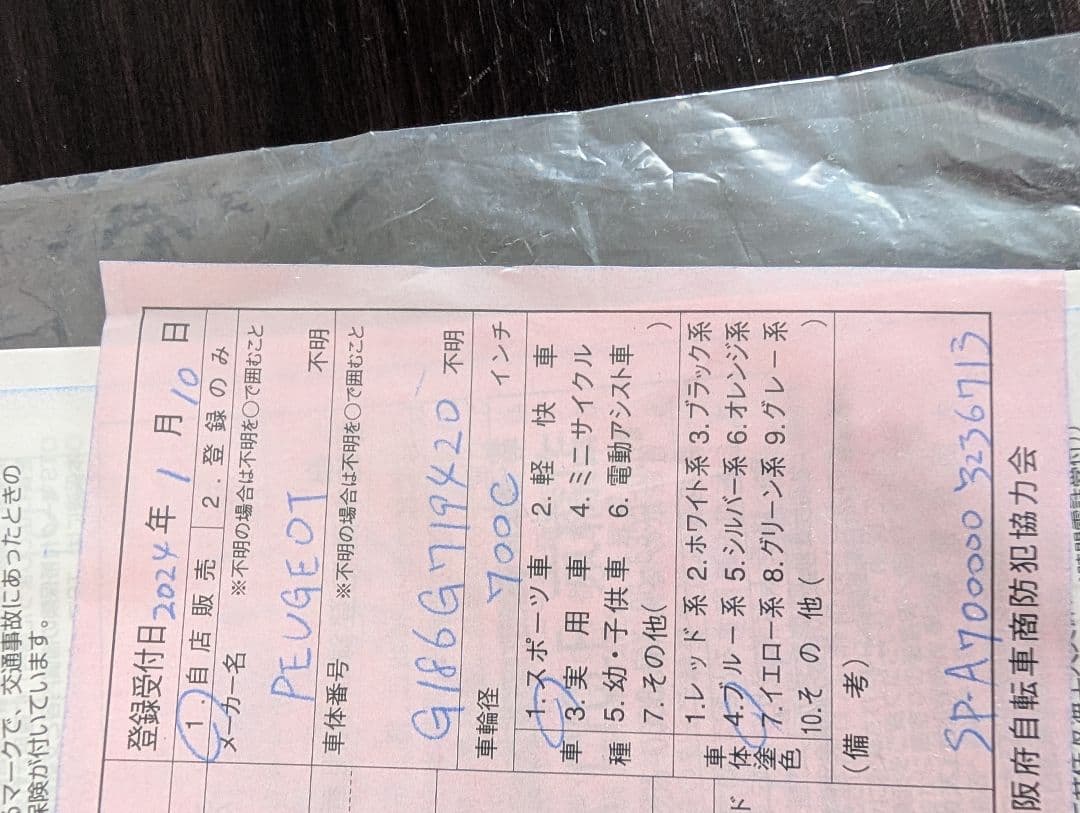 登録受付日 2024年 1月 10日
1. 自店販売 2. 登録のみ
メーカー名 ※不明の場合は不明を○で囲むこと
PEUGEOT 不明
車体番号 ※不明の場合は不明を○で囲むこと
G186G719420 不明
車輪径 700C インチ
車種
1. スポーツ車 2. 軽快車
3. 実用車 4. ミニサイクル
5. 幼・子供車 6. 電動アシスト車
7. その他( )
車体塗色
1. レッド系 2. ホワイト系 3. ブラック系
4. ブルー系 5. シルバー系 6. オレンジ系
7. イエロー系 8. グリーン系 9. グレー系
10. その他( )
(備考)
SP-A700000 3236713
阪府自転車商防犯協力会
マークで、交通事故にあったときの
保険が付いています。